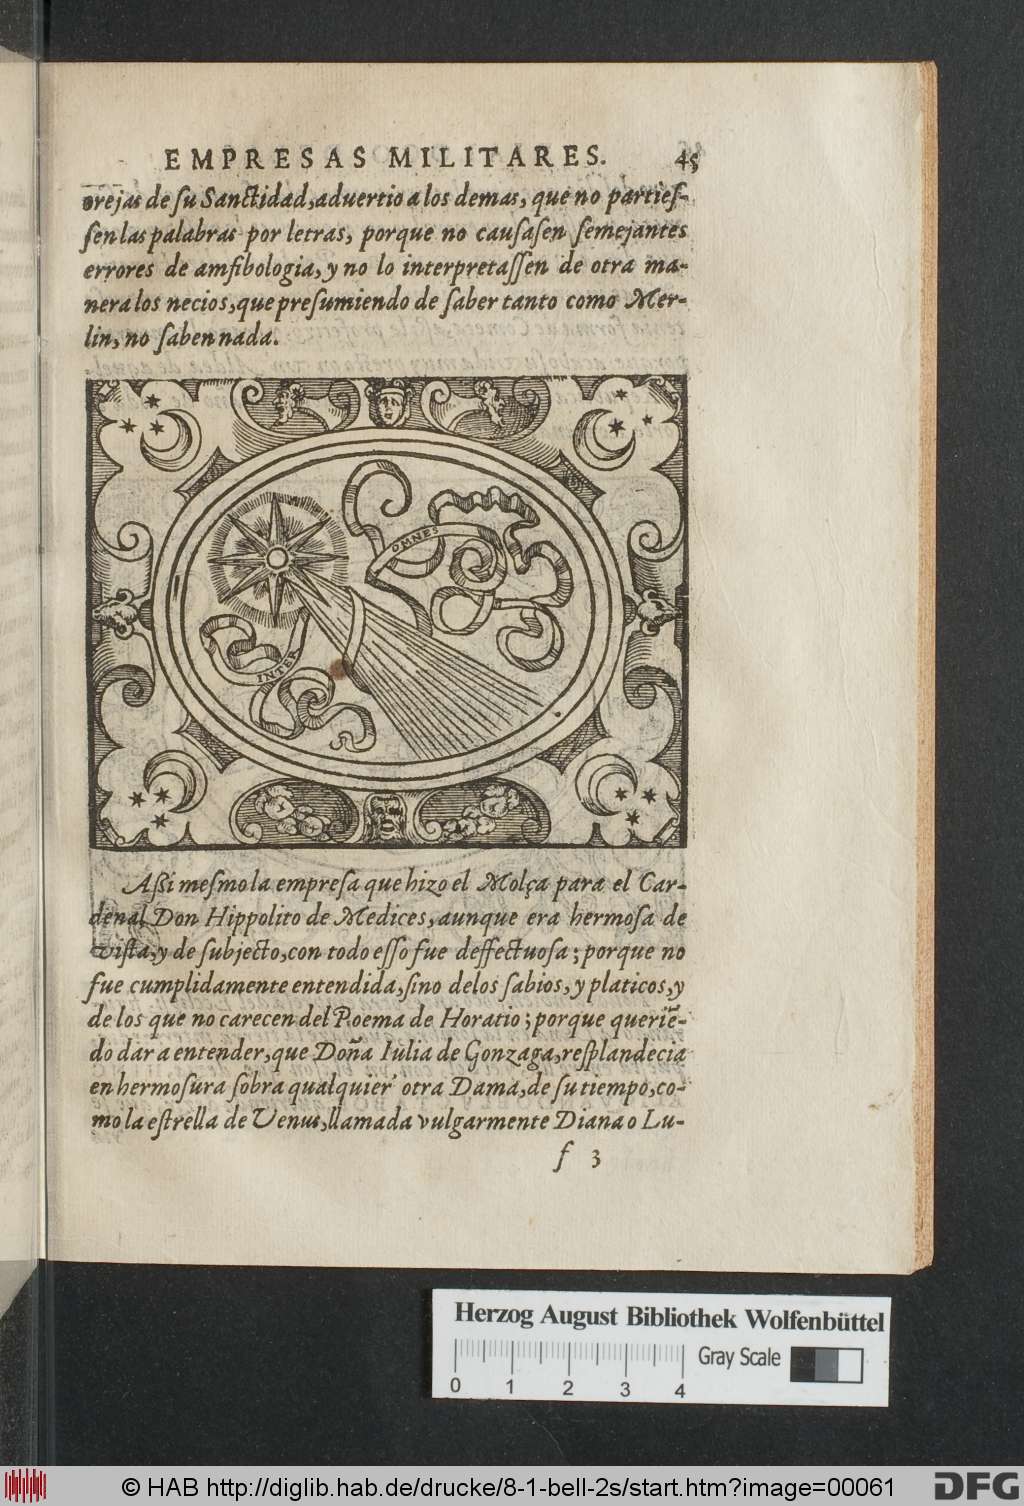 EMPRESAS MILITARES. 45
orejas de su Sanctidad, aduertio a los demas, que no parties-
sen las palabras por letras, porque no causasen semejantes
errores de amfibologia, y no lo interpretassen de otra ma-
nera los necios, que presumiendo de saber tanto como Mer-
lin, no saben nada.
OMNES
INTER
Aßi mesmo la empresa que hizo el Molça para el Car-
denal Don Hippolito de Medices, aunque era hermosa de
vista, y de subjecto, con todo esso fue deffectuosa; porque no
fue cumplidamente entendida, sino delos sabios, y platicos, y
de los que no carecen del Poema de Horatio; porque queriẽ-
do dar a entender, que Doña Iulia de Gonzaga, resplandecia
en hermosura sobra qualquier otra Dama, de su tiempo, co-
mo la estrella de Venus, llamada vulgarmente Diana o Lu-
f 3
Herzog August Bibliothek Wolfenbüttel
Gray Scale
0 1 2 3 4
© HAB http://diglib.hab.de/drucke/8-1-bell-2s/start.htm?image=00061
DFG